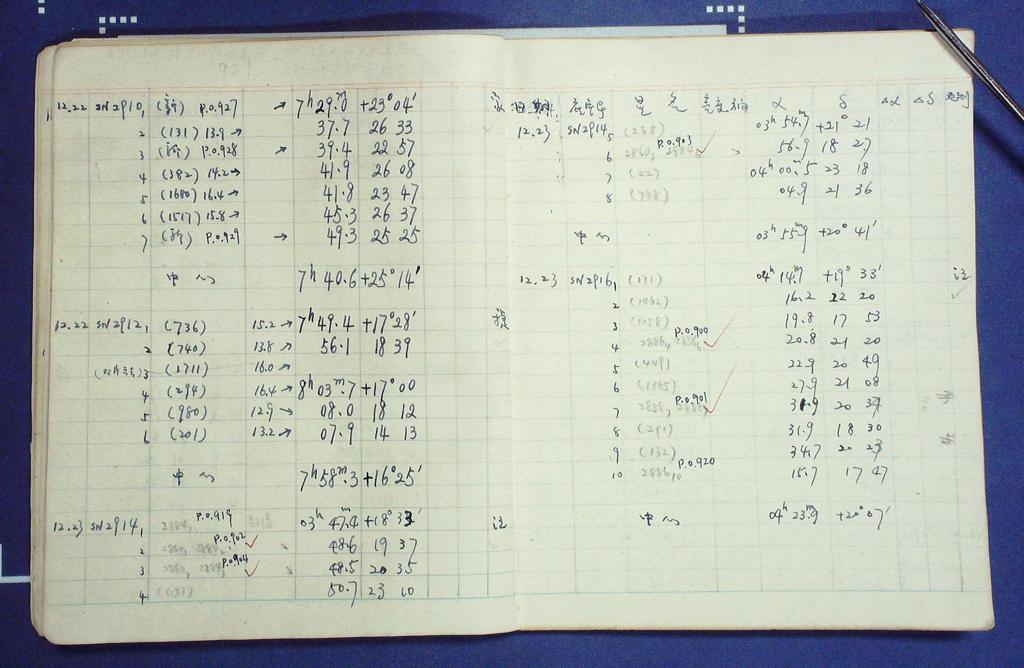 12.22 SN2910, (新) P.0.927 → 7h 29.m0 +23° 04'
2 (131) 13.9 → 37.7 26 33
3 (新) P.0.928 → 39.4 22 57
4 (382) 14.2 → 41.9 26 08
5 (1680) 16.4 → 41.8 23 47
6 (1517) 15.8 → 45.3 26 37
7 (新) P.0.929 → 49.3 25 25
中心 7h 40.6 +25° 14'
12.22 SN2912, (736) 15.2 → 7h 49.4 +17° 28'
2 (740) 13.8 → 56.1 18 39
3 (1711) 16.0
4 (294) 16.4 → 8h 03m.7 +17° 00
5 (980) 12.9 → 08.0 18 12
6 (201) 13.2 → 07.9 14 13
中心 7h 58m.3 +16° 25'
12.23 SN2914, P.0.919 03h 47m.4 +18° 33' 注
2 P.0.902 ✓ 48.6 19 37
3 P.0.904 ✓ 48.5 20 35
4 (1133) 50.7 23 10
日期 底片号 星名 亮度 α δ Δα Δδ
12.23 SN2914, 5 (235) 03h 54.m7 +21° 21
6 2860, P.0.903 ✓ 56.9 18 27
7 (22) 04h 00m.5 23 18
8 (748) 04.9 21 36
中心 03h 55m.9 +20° 41'
12.23 SN2916, (171) 04h 14m.7 +19° 33' 注
2 (1462) 16.2 22 20 ✓
3 (1058) 19.8 17 53
4 P.0.900 ✓ 20.8 21 20
5 (449) 22.9 20 49
6 (1965) 27.9 21 08
7 P.0.901 ✓ 31.9 20 37
8 (291) 31.9 18 30
9 (132) 34.7 20 23
10 2886 10 P.0.920 15.7 17 47
中心 04h 23m.9 +20° 07'